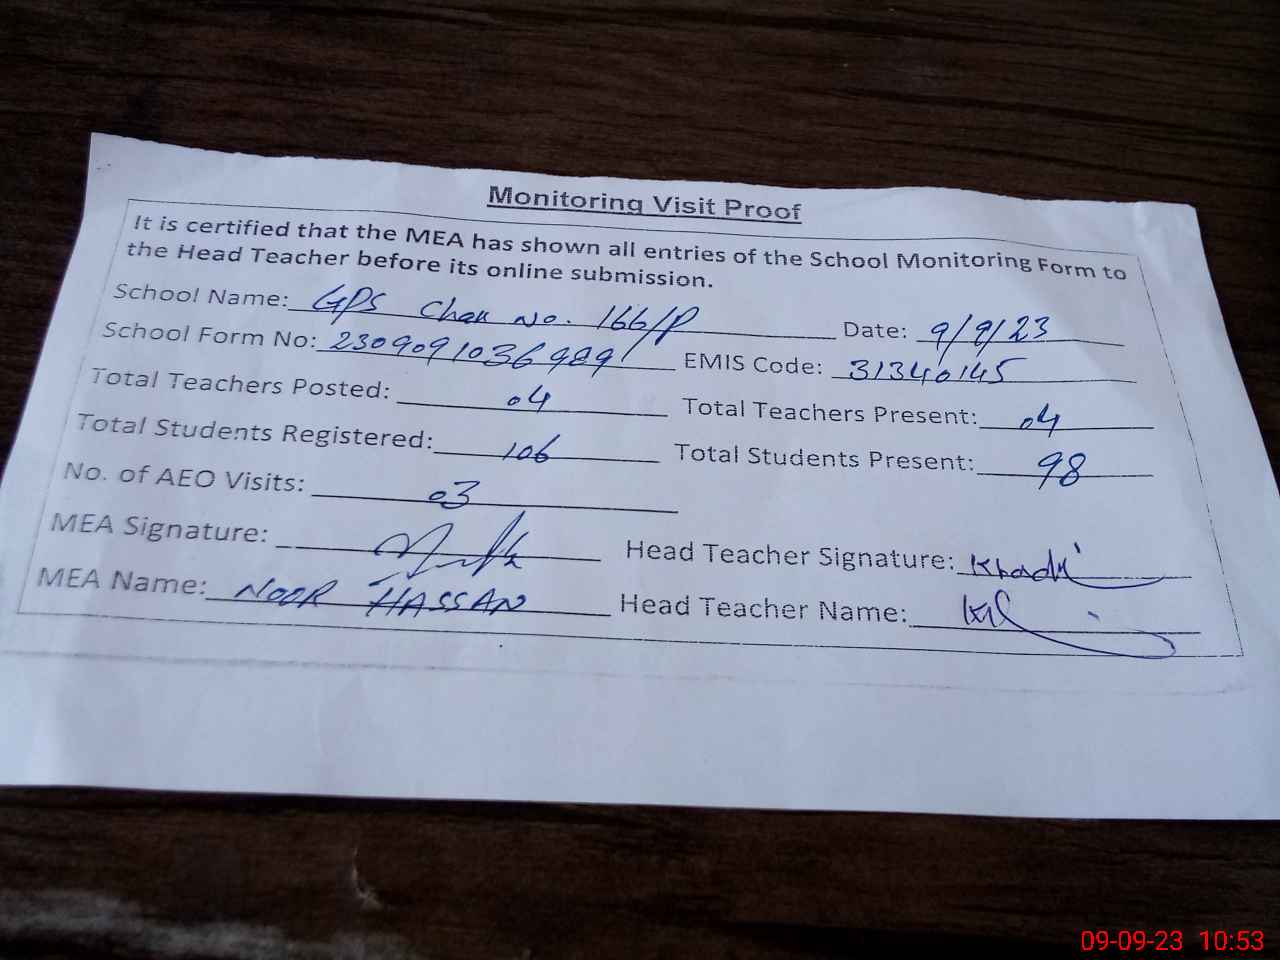 Monitoring Visit Proof
It is certified that the MEA has shown all entries of the School Monitoring Form to
the Head Teacher before its online submission.
School Name: GPS Chak No. 166/P Date: 9/9/23
School Form No: 2309091036989 EMIS Code: 31340145
Total Teachers Posted: 04 Total Teachers Present: 04
Total Students Registered: 106 Total Students Present: 98
No. of AEO Visits: 03
MEA Signature: Head Teacher Signature:
MEA Name: NOOR HASSAN Head Teacher Name:
09-09-23 10:53